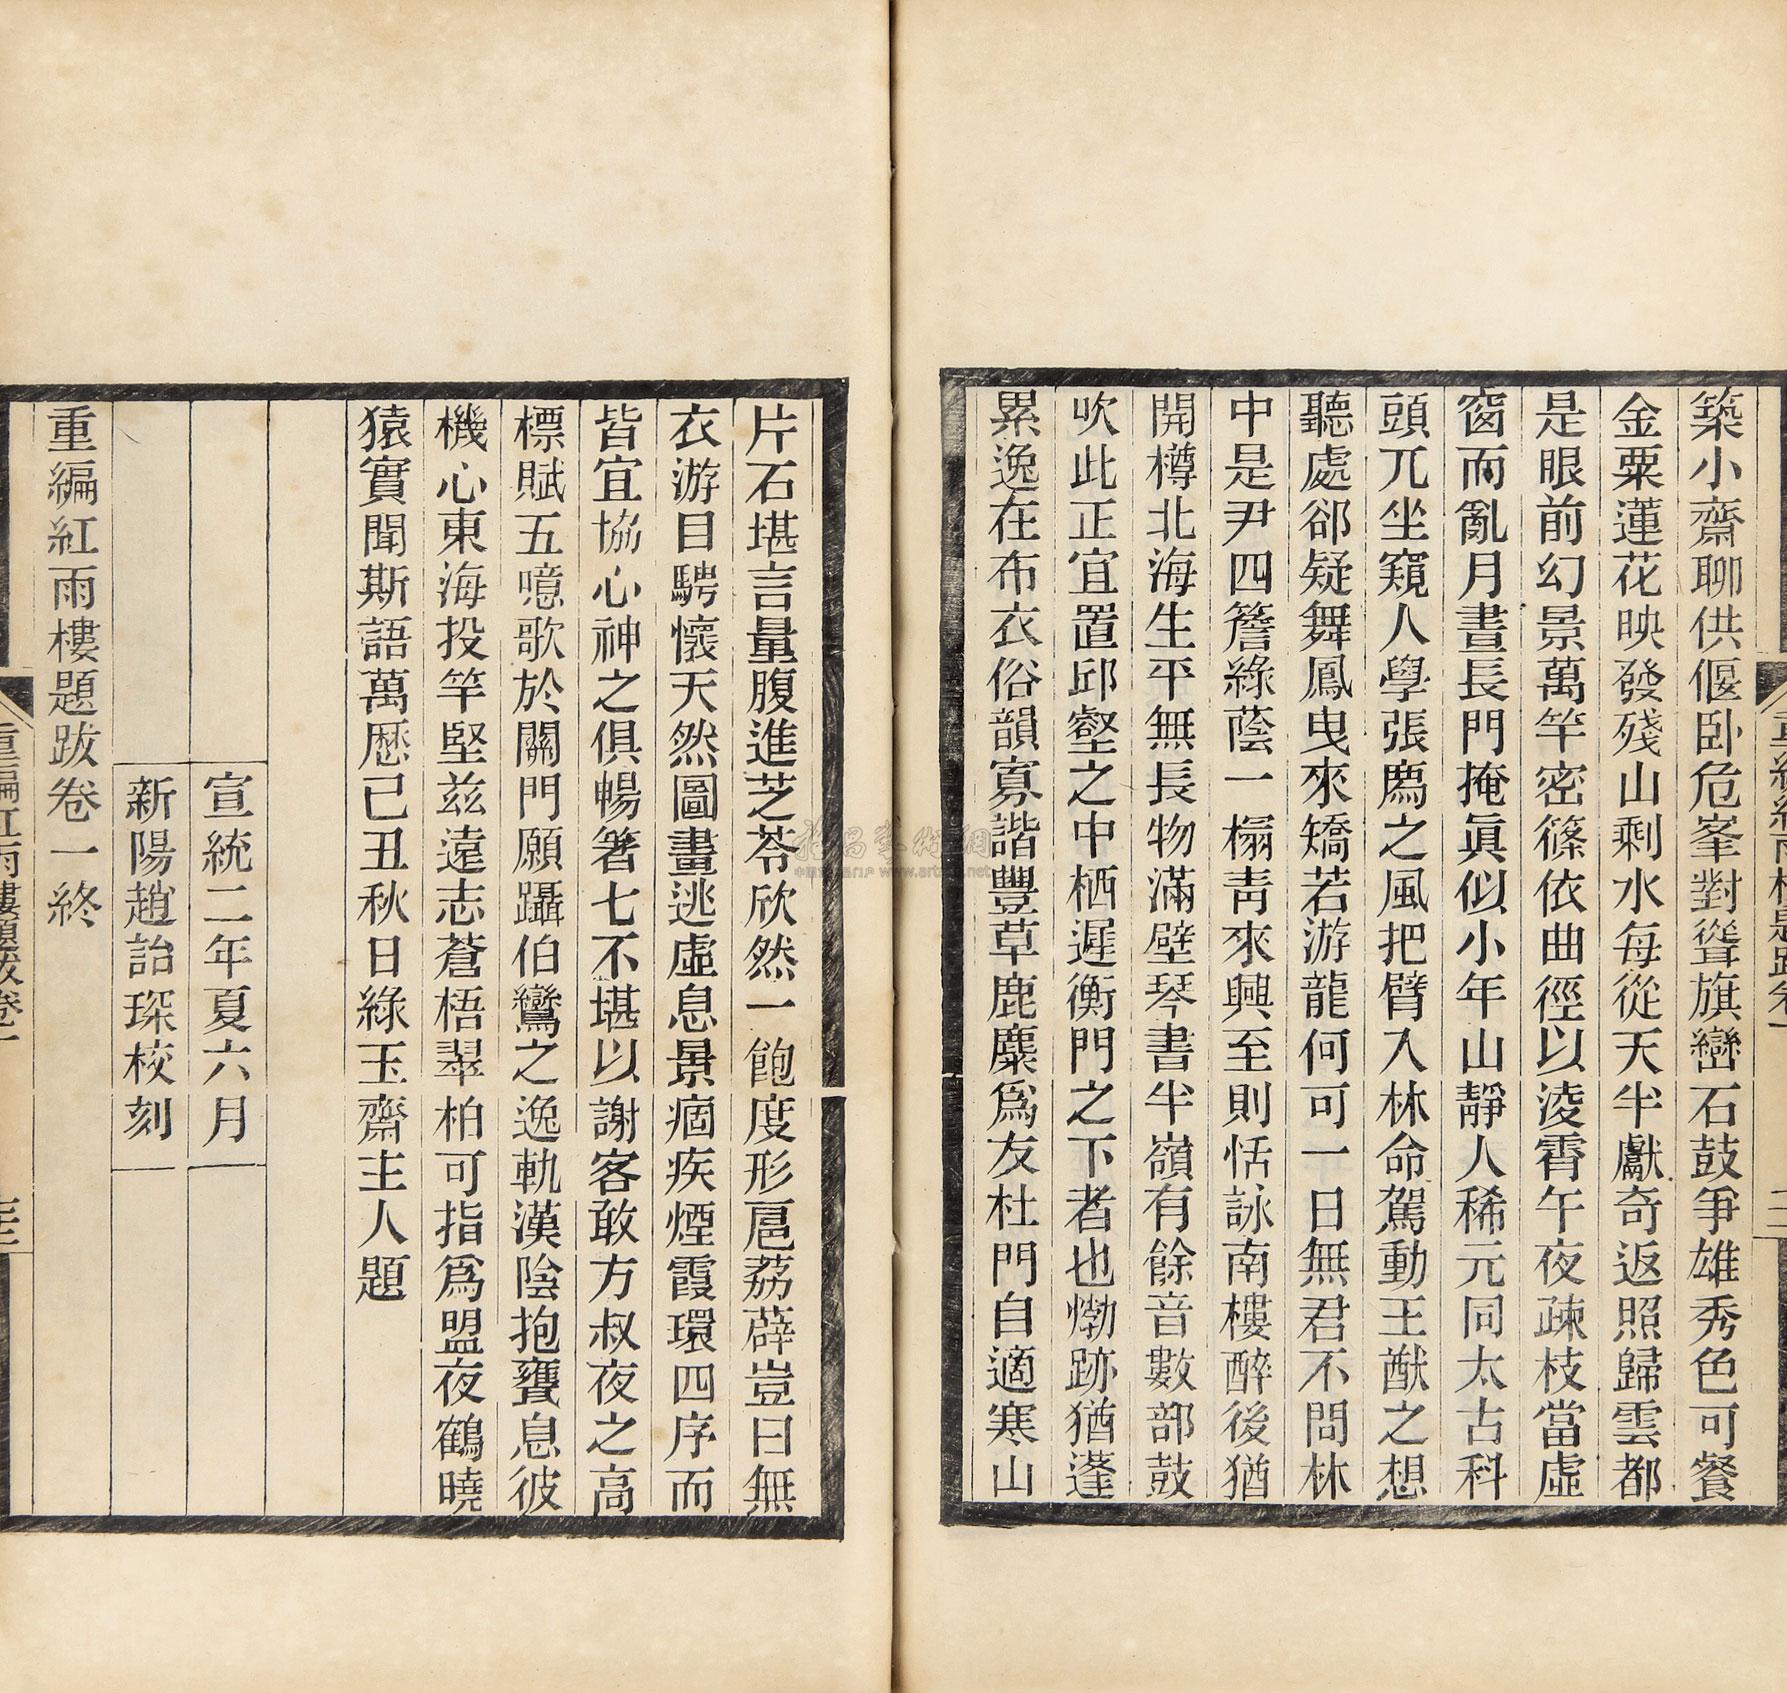 築小齋聊供偃臥危峯對聳旗巒石鼓爭雄秀色可餐
金粟蓮花映發殘山剩水每從天半獻奇返照歸雲都
是眼前幻景萬竿密篠依曲徑以淩霄午夜疎枝當虛
窗而亂月晝長門掩眞似小年山靜人稀元同太古科
頭兀坐窺人學張廌之風把臂入林命駕動王猷之想
聽處卻疑舞鳳曳來矯若游龍何可一日無君不問林
中是尹四簷綠蔭一榻靑來興至則恬詠南樓醉後猶
開樽北海生平無長物滿壁琴書半嶺有餘音數部鼓
吹此正宜置邱壑之中栖遲衡門之下者也慚跡猶蓬
累逸在布衣俗韻寡諧豐草鹿麋爲友杜門自適寒山
片石堪言量腹進芝苓欣然一飽度形扈荔薜豈曰無
衣游目騁懷天然圖畫逃虛息景痼疾煙霞環四序而
皆宜協心神之俱暢箸七不堪以謝客敢方叔夜之高
標賦五噫歌於關門願躡伯鸞之逸軌漢陰抱甕息彼
機心東海投竿堅茲遠志蒼梧翠柏可指爲盟夜鶴曉
猿實聞斯語萬歷己丑秋日綠玉齋主人題
宣統二年夏六月
新陽趙詒琛校刻
重編紅雨樓題跋卷一終
重編紅雨樓題跋卷一